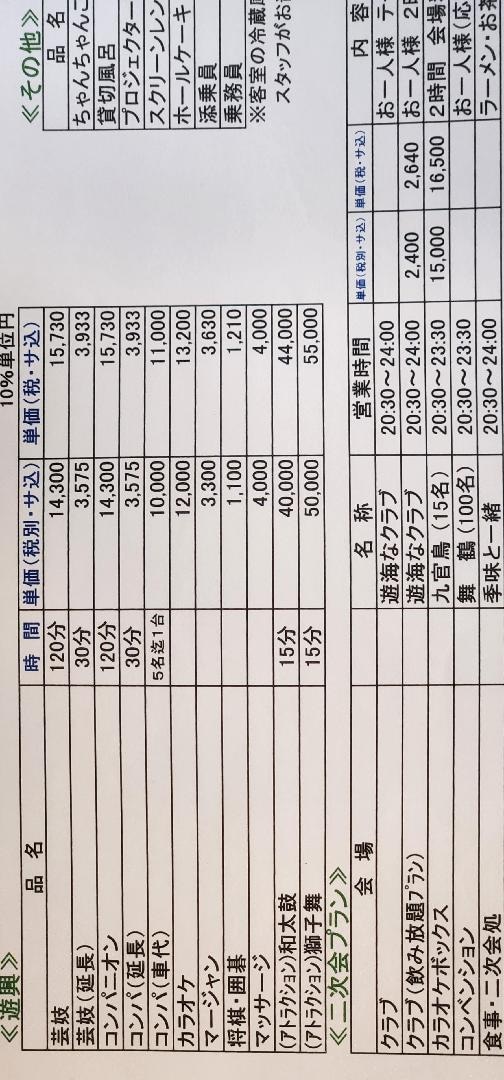 10%単位円
≪遊興≫
品 名 時 間 単価(税別・サ込) 単価(税・サ込)
芸妓 120分 14,300 15,730
芸妓(延長) 30分 3,575 3,933
コンパニオン 120分 14,300 15,730
コンパ(延長) 30分 3,575 3,933
コンパ(車代) 5名迄1台 10,000 11,000
カラオケ 12,000 13,200
マージャン 3,300 3,630
将棋・囲碁 1,100 1,210
マッサージ 4,000 4,000
(アトラクション)和太鼓 15分 40,000 44,000
(アトラクション)獅子舞 15分 50,000 55,000
≪その他≫
品 名
ちゃんちゃんこ
貸切風呂
プロジェクター
スクリーンレン
ホールケーキ
添乗員
乗務員
※客室の冷蔵
スタッフがお
≪二次会プラン≫
会 場 名 称 営業時間 単価(税別・サ込) 単価(税・サ込) 内 容
クラブ 遊海なクラブ 20:30～24:00 お一人様 テ
クラブ(飲み放題プラン) 遊海なクラブ 20:30～24:00 2,400 2,640 お一人様 2
カラオケボックス 九官鳥(15名) 20:30～23:30 15,000 16,500 2時間 会場
コンベンション 舞 鶴(100名) 20:30～23:30 お一人様(応
食事・二次会処 季味と一緒 20:30～24:00 ラーメン・お茶